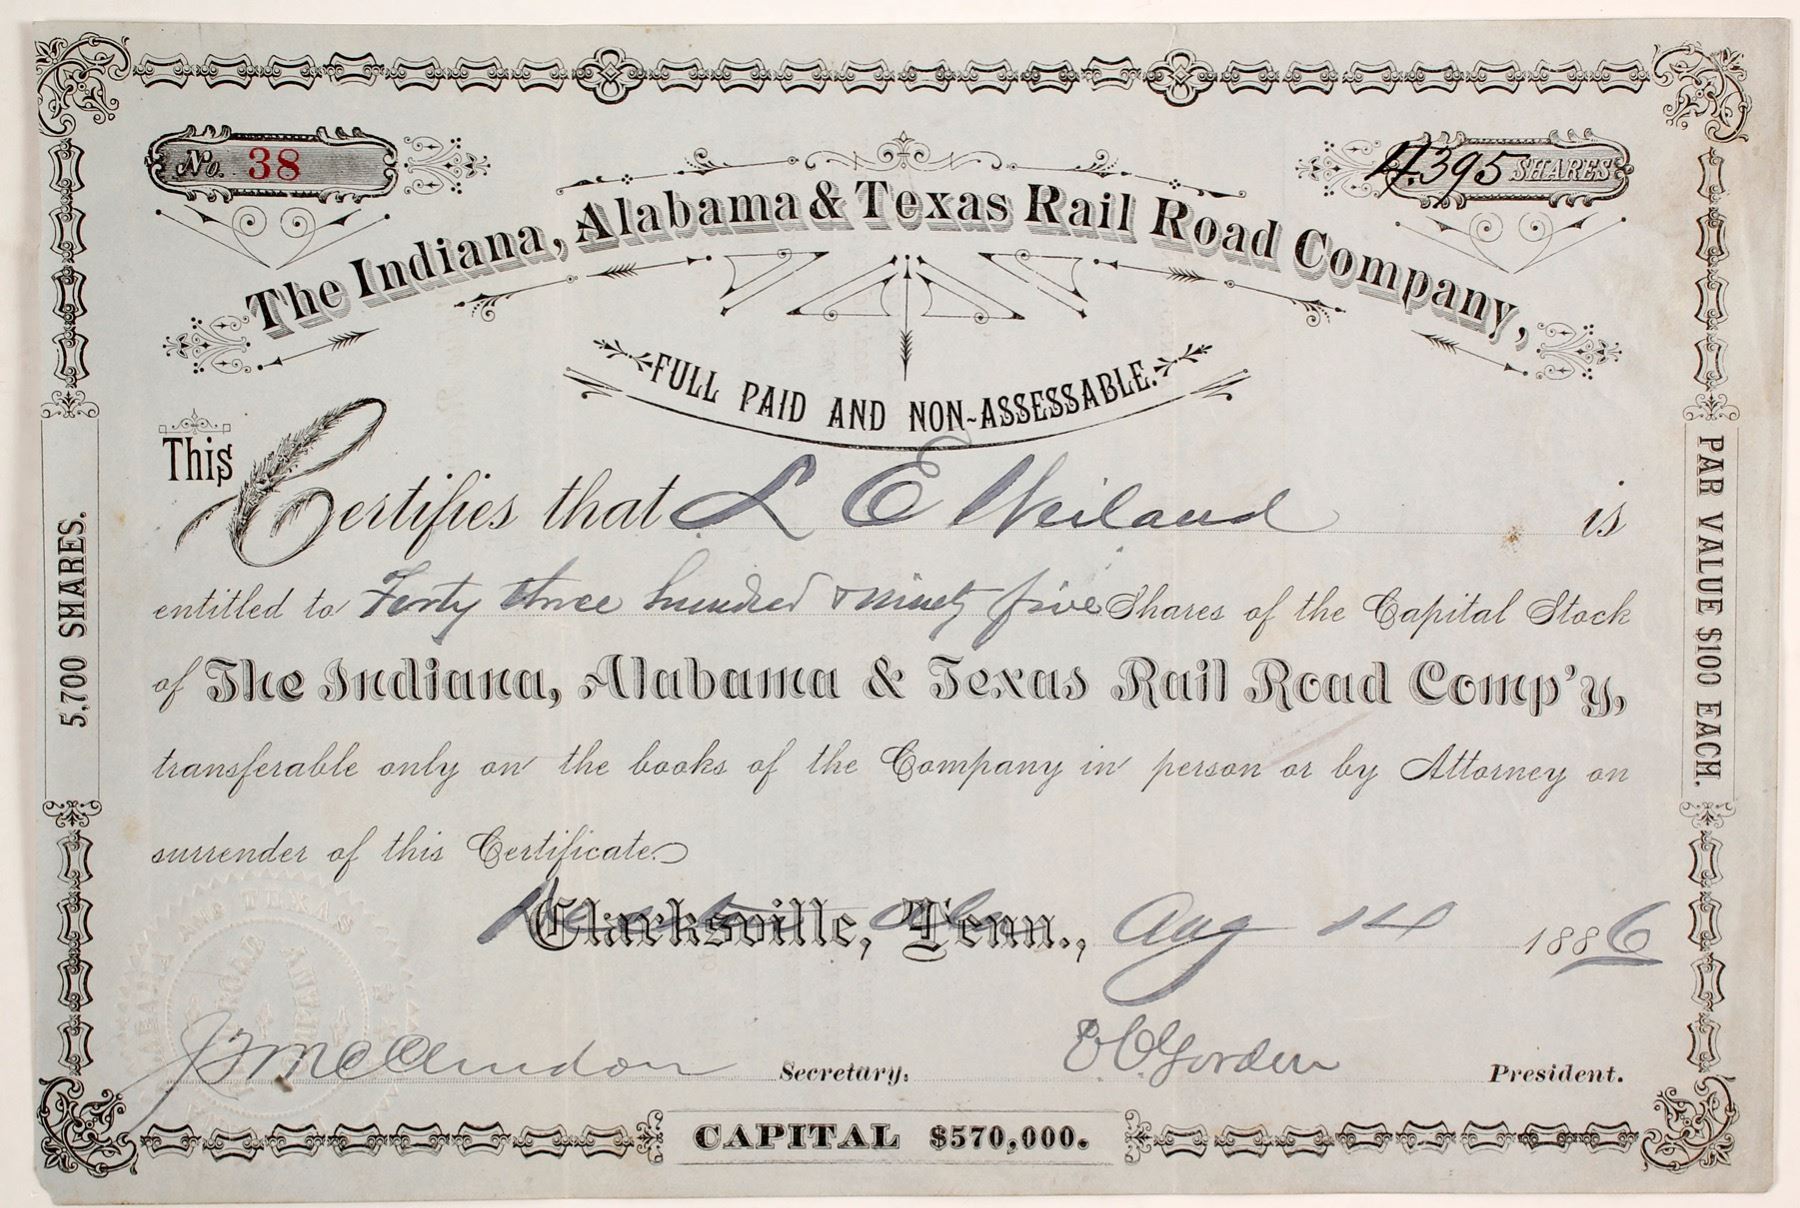 No. 38
4395 SHARES
The Indiana, Alabama & Texas Rail Road Company,
FULL PAID AND NON-ASSESSABLE.
This Certifies that L E Weiland is
entitled to Forty three hundred & ninety five Shares of the Capital Stock
of The Indiana, Alabama & Texas Rail Road Comp'y,
transferable only on the books of the Company in person or by Attorney on
surrender of this Certificate.
Clarksville, Tenn., Aug 14 1886
Secretary.
E C Gorden President.
CAPITAL $570,000.
5,700 SHARES.
PAR VALUE $100 EACH.
AND TEXAS